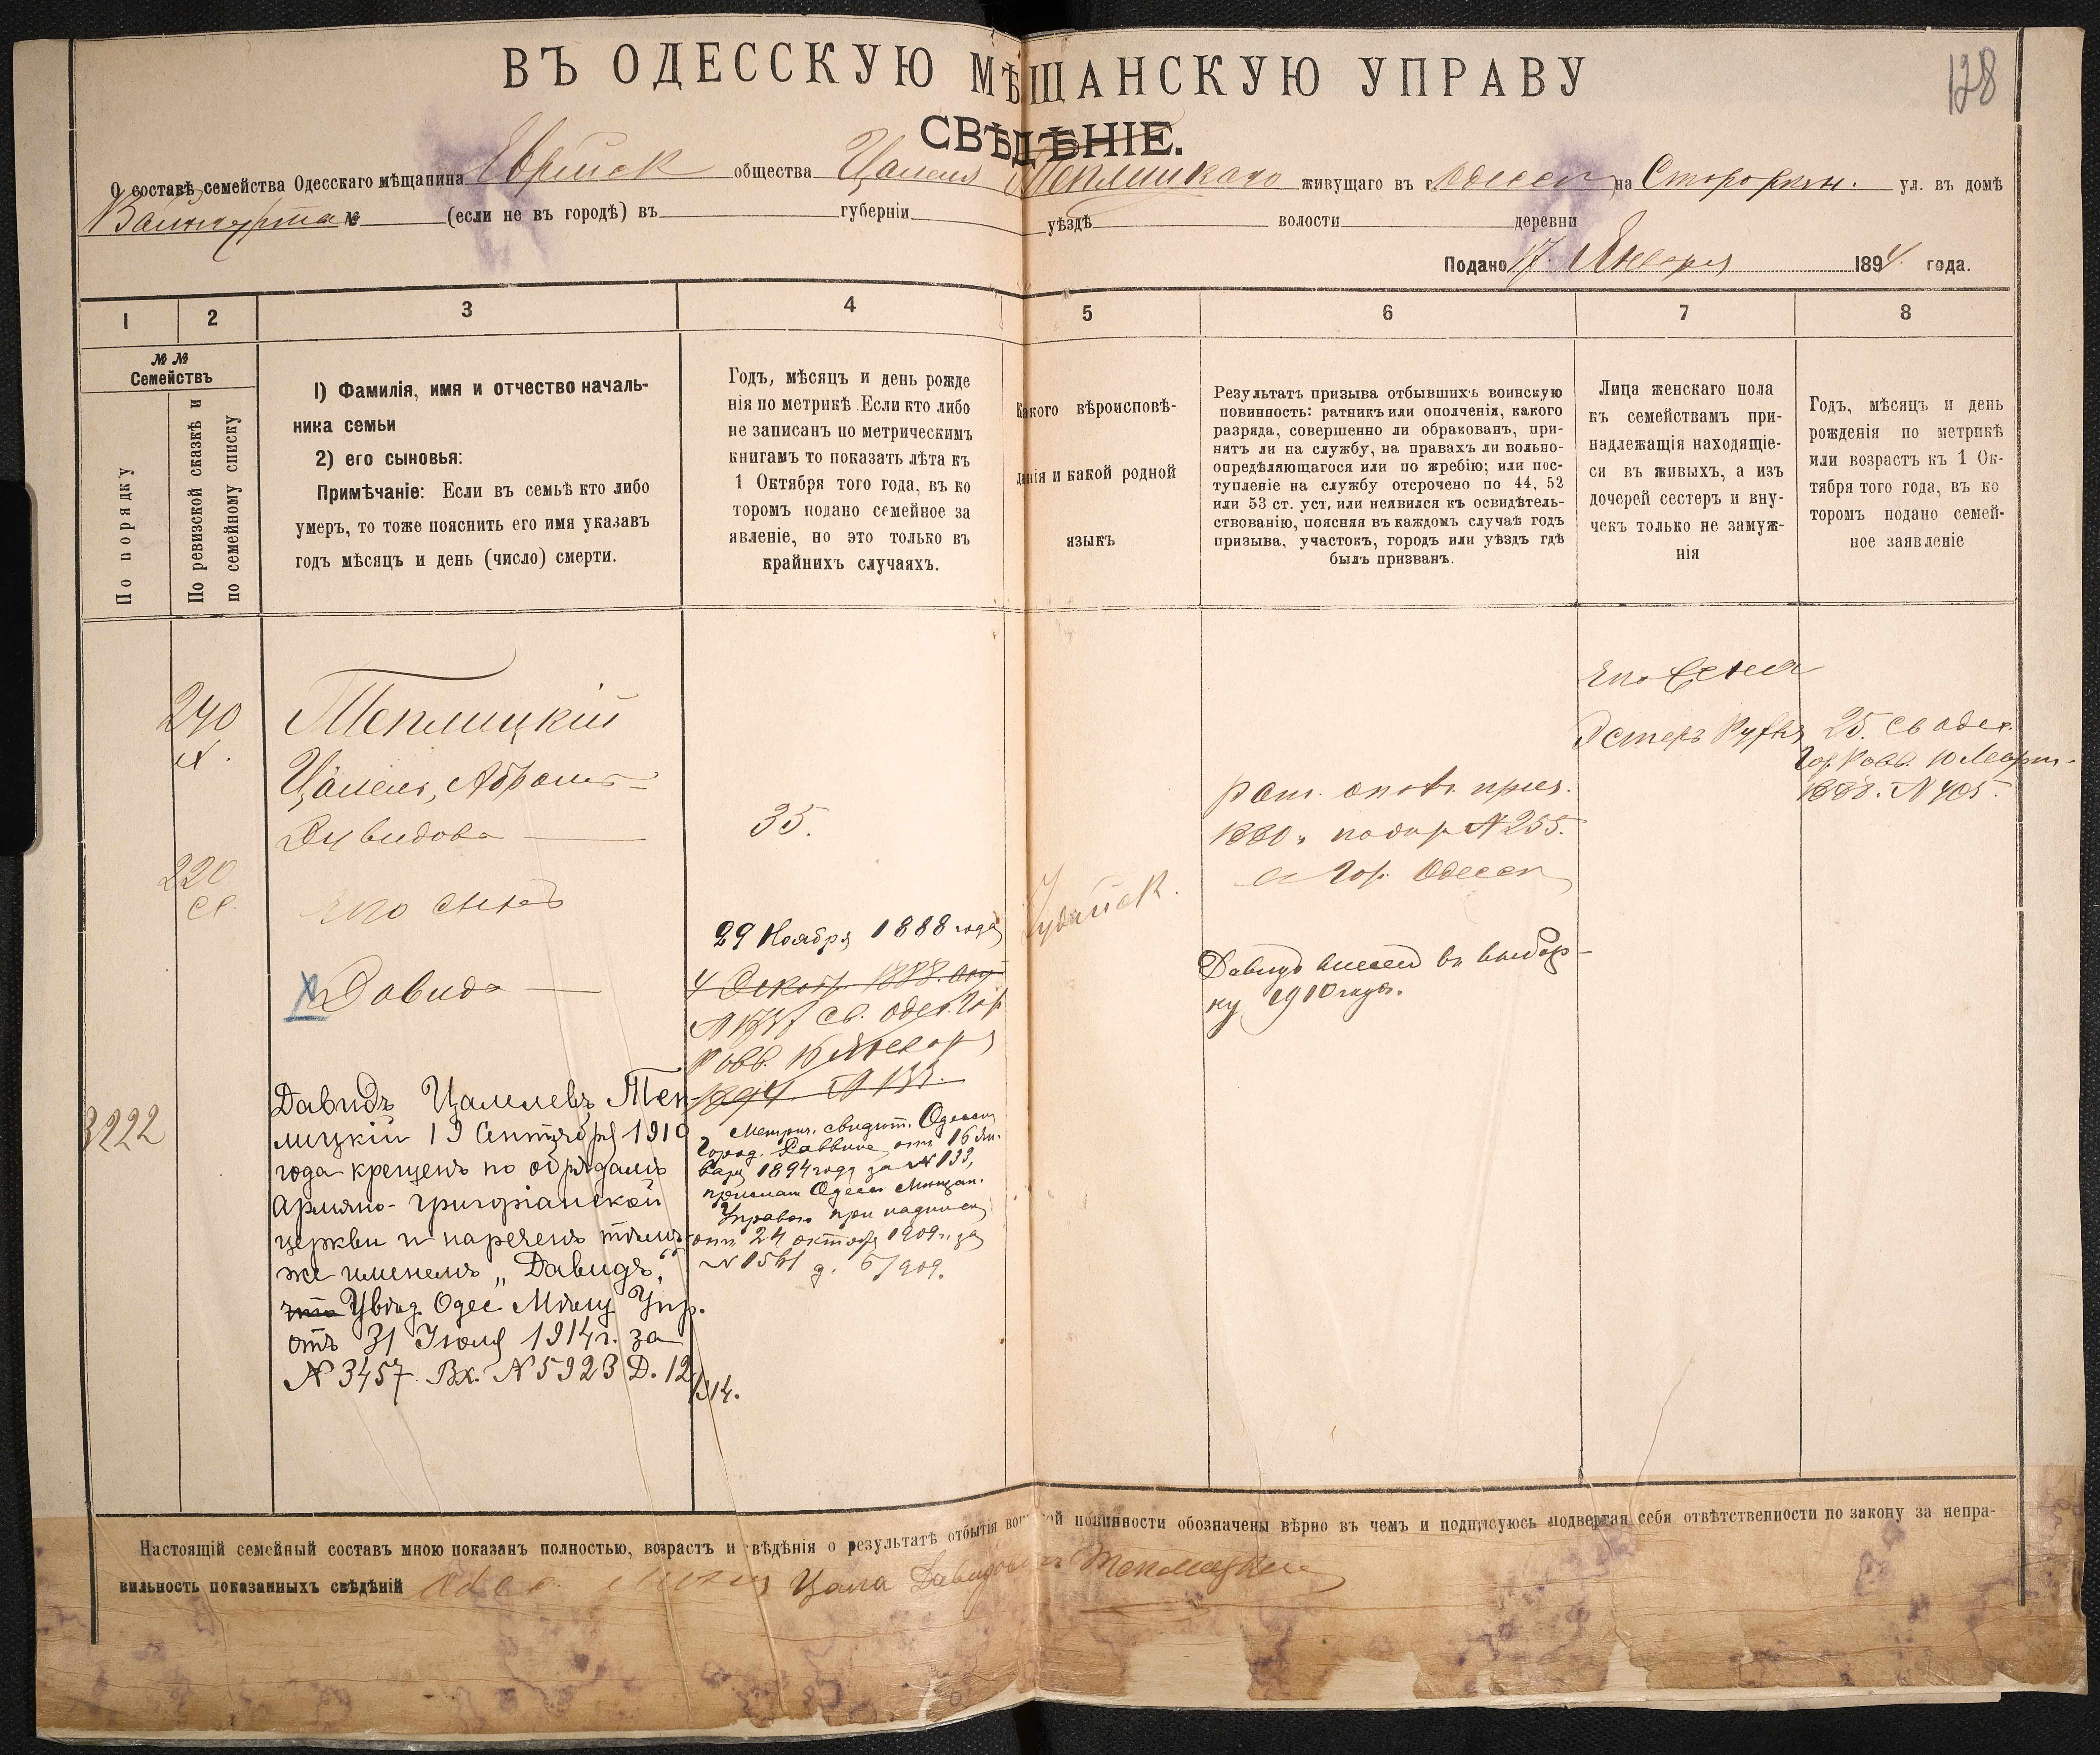 128
ВЪ ОДЕССКУЮ МѢЩАНСКУЮ УПРАВУ
СВѢДѢНІЕ.
О составѣ семейства Одесскаго мѣщанина Еврейск общества Цалеля Теплицкаго живущаго въ г Одессѣ на ул. въ домѣ
№ (если не въ городѣ) въ губерніи уѣздѣ волости деревни
Подано 17 Января 1894 года.
1 2 3 4 5 6 7 8
№ №
Семействъ
По порядку
По ревизской сказкѣ и
по семейному списку
1) Фамилія, имя и отчество началь-
ника семьи
2) его сыновья:
Примѣчаніе: Если въ семьѣ кто либо
умеръ, то тоже пояснить его имя указавъ
годъ мѣсяцъ и день (число) смерти.
Годъ, мѣсяцъ и день рожде
нія по метрикѣ Если кто либо
не записанъ по метрическимъ
книгамъ то показать лѣта къ
1 Октября того года, въ ко
торомъ подано семейное за
явленіе, но это только въ
крайнихъ случаяхъ.
Какого вѣроисповѣ-
данія и какой родной
языкъ
Результатъ призыва отбывшихъ воинскую
повинность: ратникъ или ополченія, какого
разряда, совершенно ли обракованъ, при-
нятъ ли на службу, на правахъ ли вольно-
опредѣляющагося или по жребію; или пос-
тупленіе на службу отсрочено по 44, 52
или 53 ст. уст. или неявился къ освидѣтель-
ствованію, поясняя въ каждомъ случаѣ годъ
призыва, участокъ, городъ или уѣздъ гдѣ
былъ призванъ.
Лица женскаго пола
къ семействамъ при-
надлежащія находящіе-
ся въ живыхъ, а изъ
дочерей сестеръ и вну-
чекъ только не замуж-
нія
Годъ, мѣсяцъ и день
рожденія по метрикѣ
или возрастъ къ 1 Ок-
тября того года, въ ко
торомъ подано семей-
ное заявленіе
Теплицкій
Цалель, Абрамъ
Давидова
35.
220
его сынъ
Давидъ
29 Ноября 1888 года
4 1888
св. одес. гор
Равв. 16 Января
1894. № 133.
Метрич. свидѣт. Одесск
Город. Раввина отъ 16 Ян-
варя 1894 года за № 133,
прислан Одесс Мѣщан.
Управою при надписи
отъ 24 октября 1909 г. за
№ 1561 д. 6/909.
Іудейск.
1880 г. № 255.
гор. Одессы
Давидъ внесенъ въ выбор-
ку 1910 года.
его жена
Эстеръ Руфля
25. св одес.
гор Равв. 10 Март
1888. № 405.
3222
Давидъ Цалелевъ Теп-
лицкій 19 Сентября 1910
года крещенъ по обрядамъ
Армяно-григоріанской
церкви и нареченъ тѣмъ-
же именемъ „Давидъ“.
что Увѣд. Одес Мѣщ Упр.
отъ 31 Іюля 1914 г. за
№ 3457 Вх. № 5923 Д. 12/914.
Настоящій семейный составъ мною показанъ полностью, возрастъ и свѣдѣнія о результатѣ отбытія воинской повинности обозначены вѣрно въ чемъ и подписуюсь подвергая себя отвѣтственности по закону за непра-
вильность показанныхъ свѣдѣній Цала Давидовъ Теплицкій